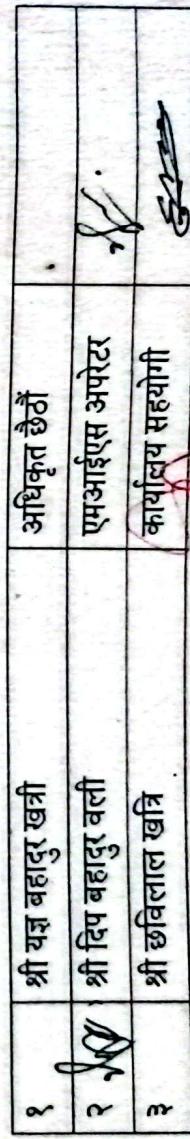 १ श्री यज्ञ बहादुर खत्री अधिकृत छैठौं
२ श्री दिप बहादुर वली एमआईएस अपरेटर
३ श्री छविलाल खत्रि कार्यालय सहयोगी